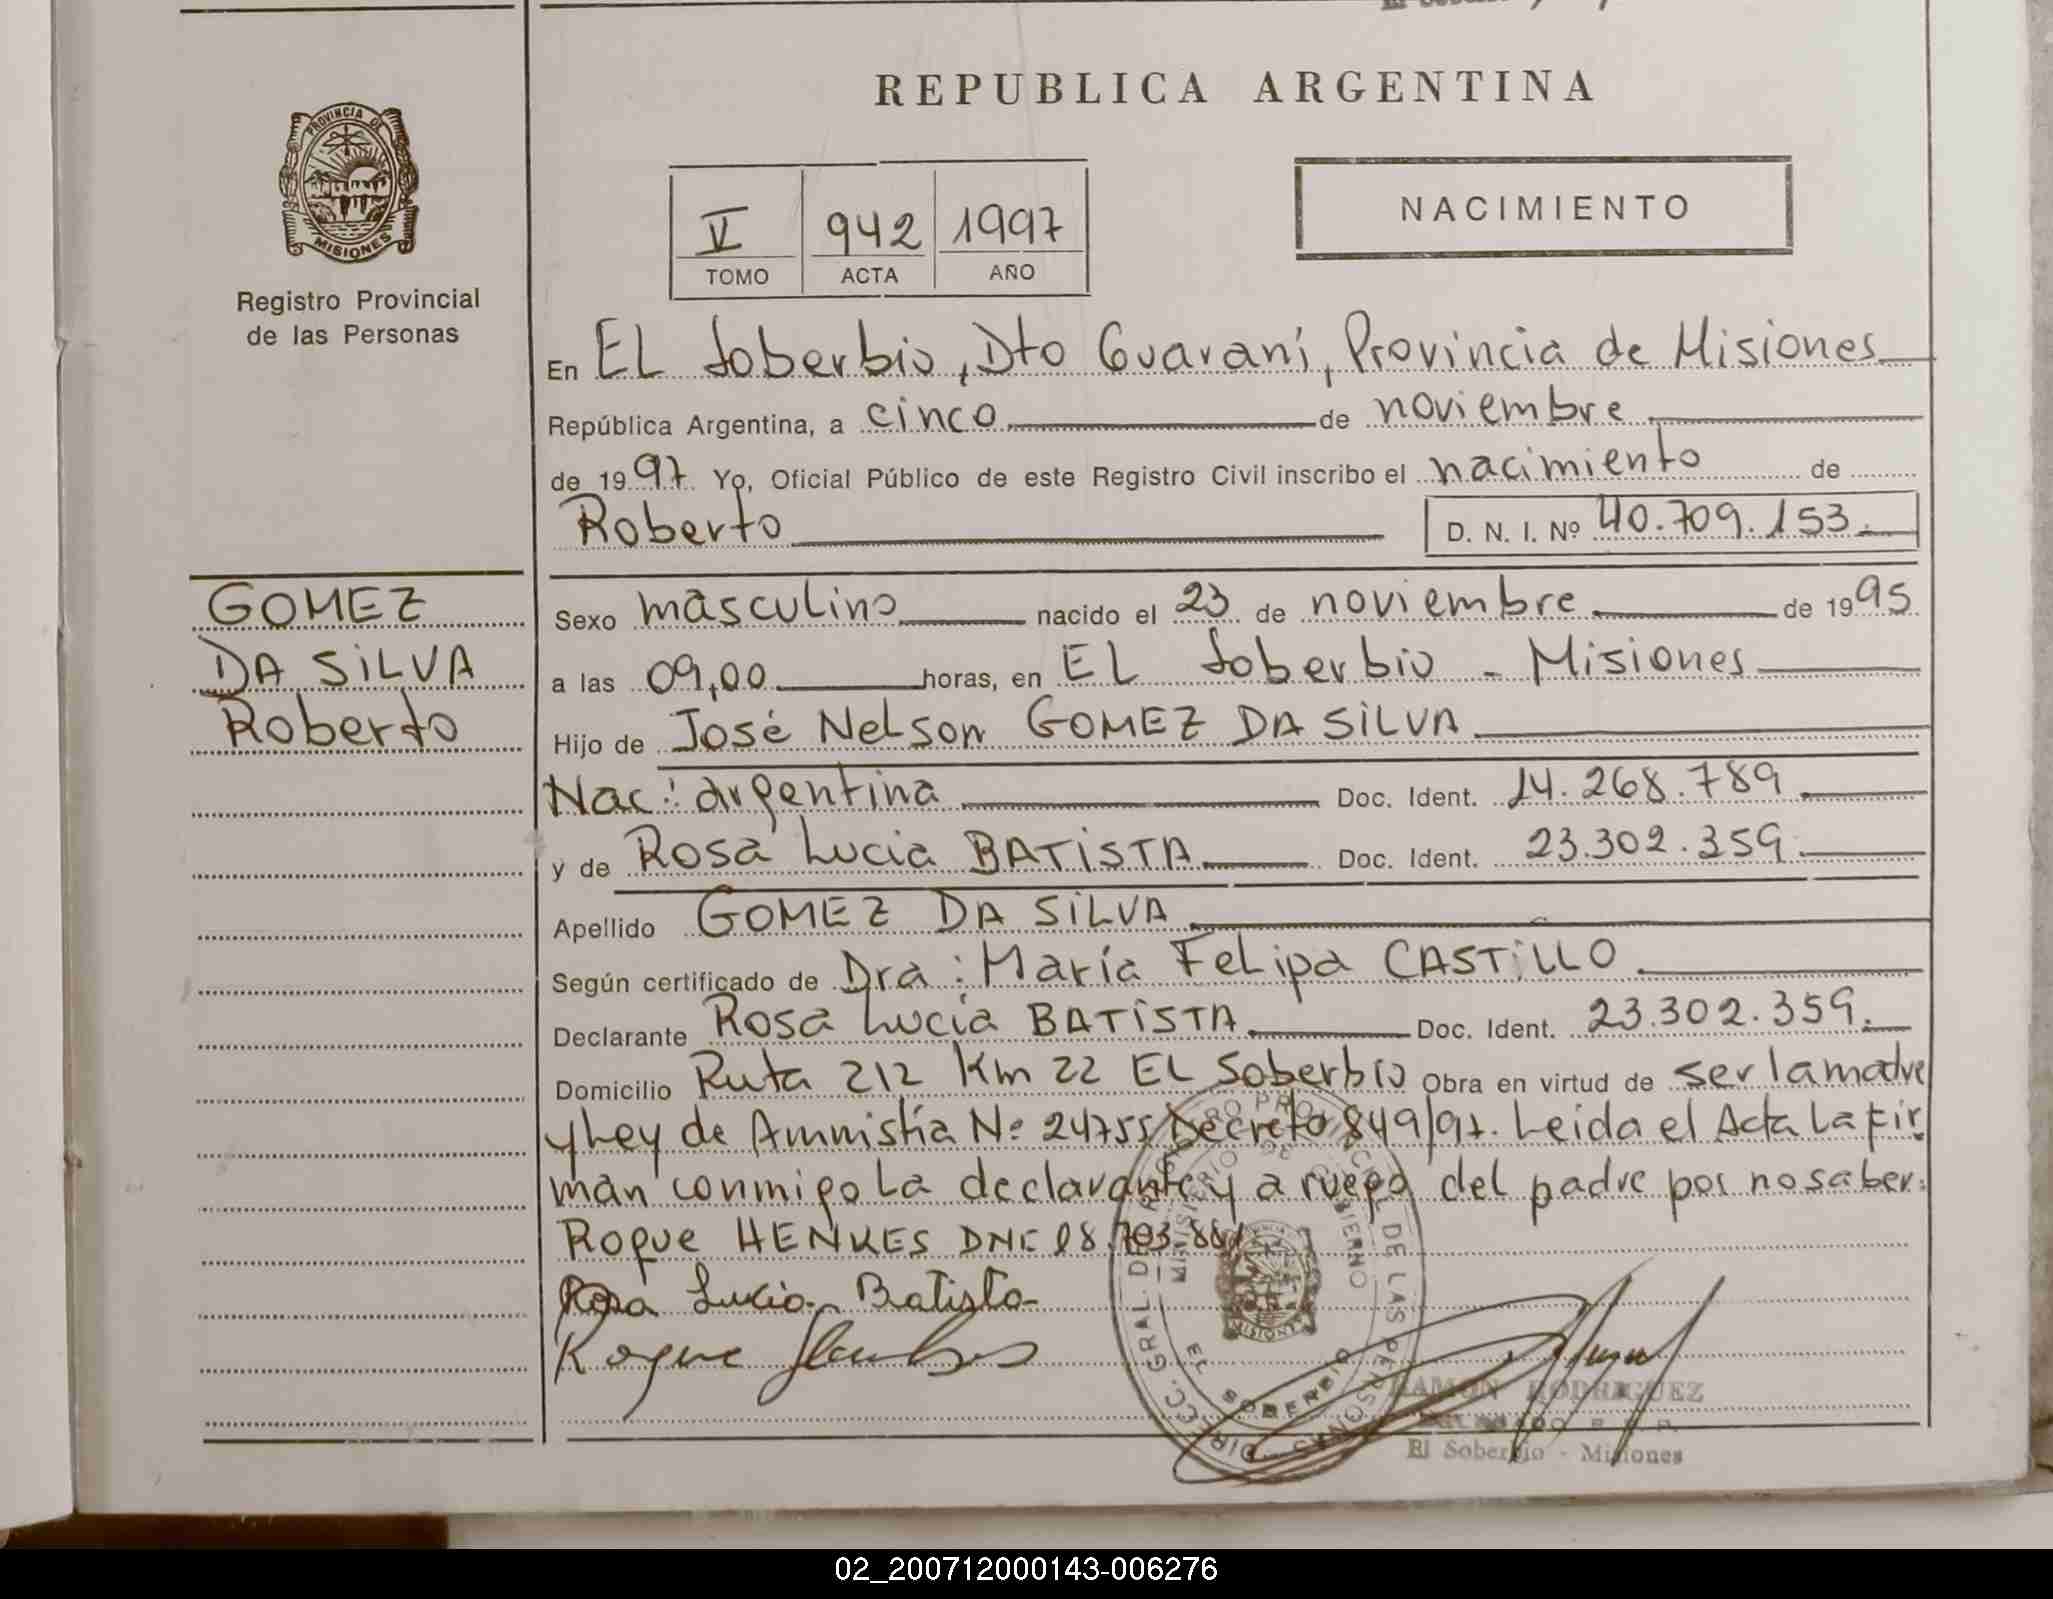 REPUBLICA ARGENTINA
PROVINCIA DE
MISIONES
Registro Provincial
de las Personas
V 942 1997
TOMO ACTA AÑO
NACIMIENTO
En EL Soberbio, Dto Guaraní, Provincia de Misiones
República Argentina, a cinco de noviembre
de 1997. Yo, Oficial Público de este Registro Civil inscribo el nacimiento de
Roberto D. N. I. Nº 40.709.153.
GOMEZ
DA SILVA
Roberto
Sexo masculino nacido el 23 de noviembre de 1995
a las 09,00 horas, en EL Soberbio - Misiones
Hijo de José Nelson GOMEZ DA SILVA
Nac: argentina Doc. Ident. 14.268.789
y de Rosa Lucia BATISTA Doc. Ident. 23.302.359.
Apellido GOMEZ DA SILVA
Según certificado de Dra: María Felipa CASTILLO
Declarante Rosa Lucia BATISTA Doc. Ident. 23.302.359.
Domicilio Ruta 212 Km 22 EL Soberbio Obra en virtud de ser la madre
y Ley de Amnistía Nº 24755/Decreto 849/97. Leída el Acta La fir
man conmigo La declarante y a ruego del padre por no saber:
Roque HENKES
Rosa Lucia Batista
Roque Henkes
DIRECC. GRAL DEL REGISTRO PROVINCIAL DE LAS PERSONAS
MINISTERIO DE GOBIERNO
MISIONES
EL SOBERBIO
RAMON RODRIGUEZ
El Soberbio - Misiones
02_200712000143-006276